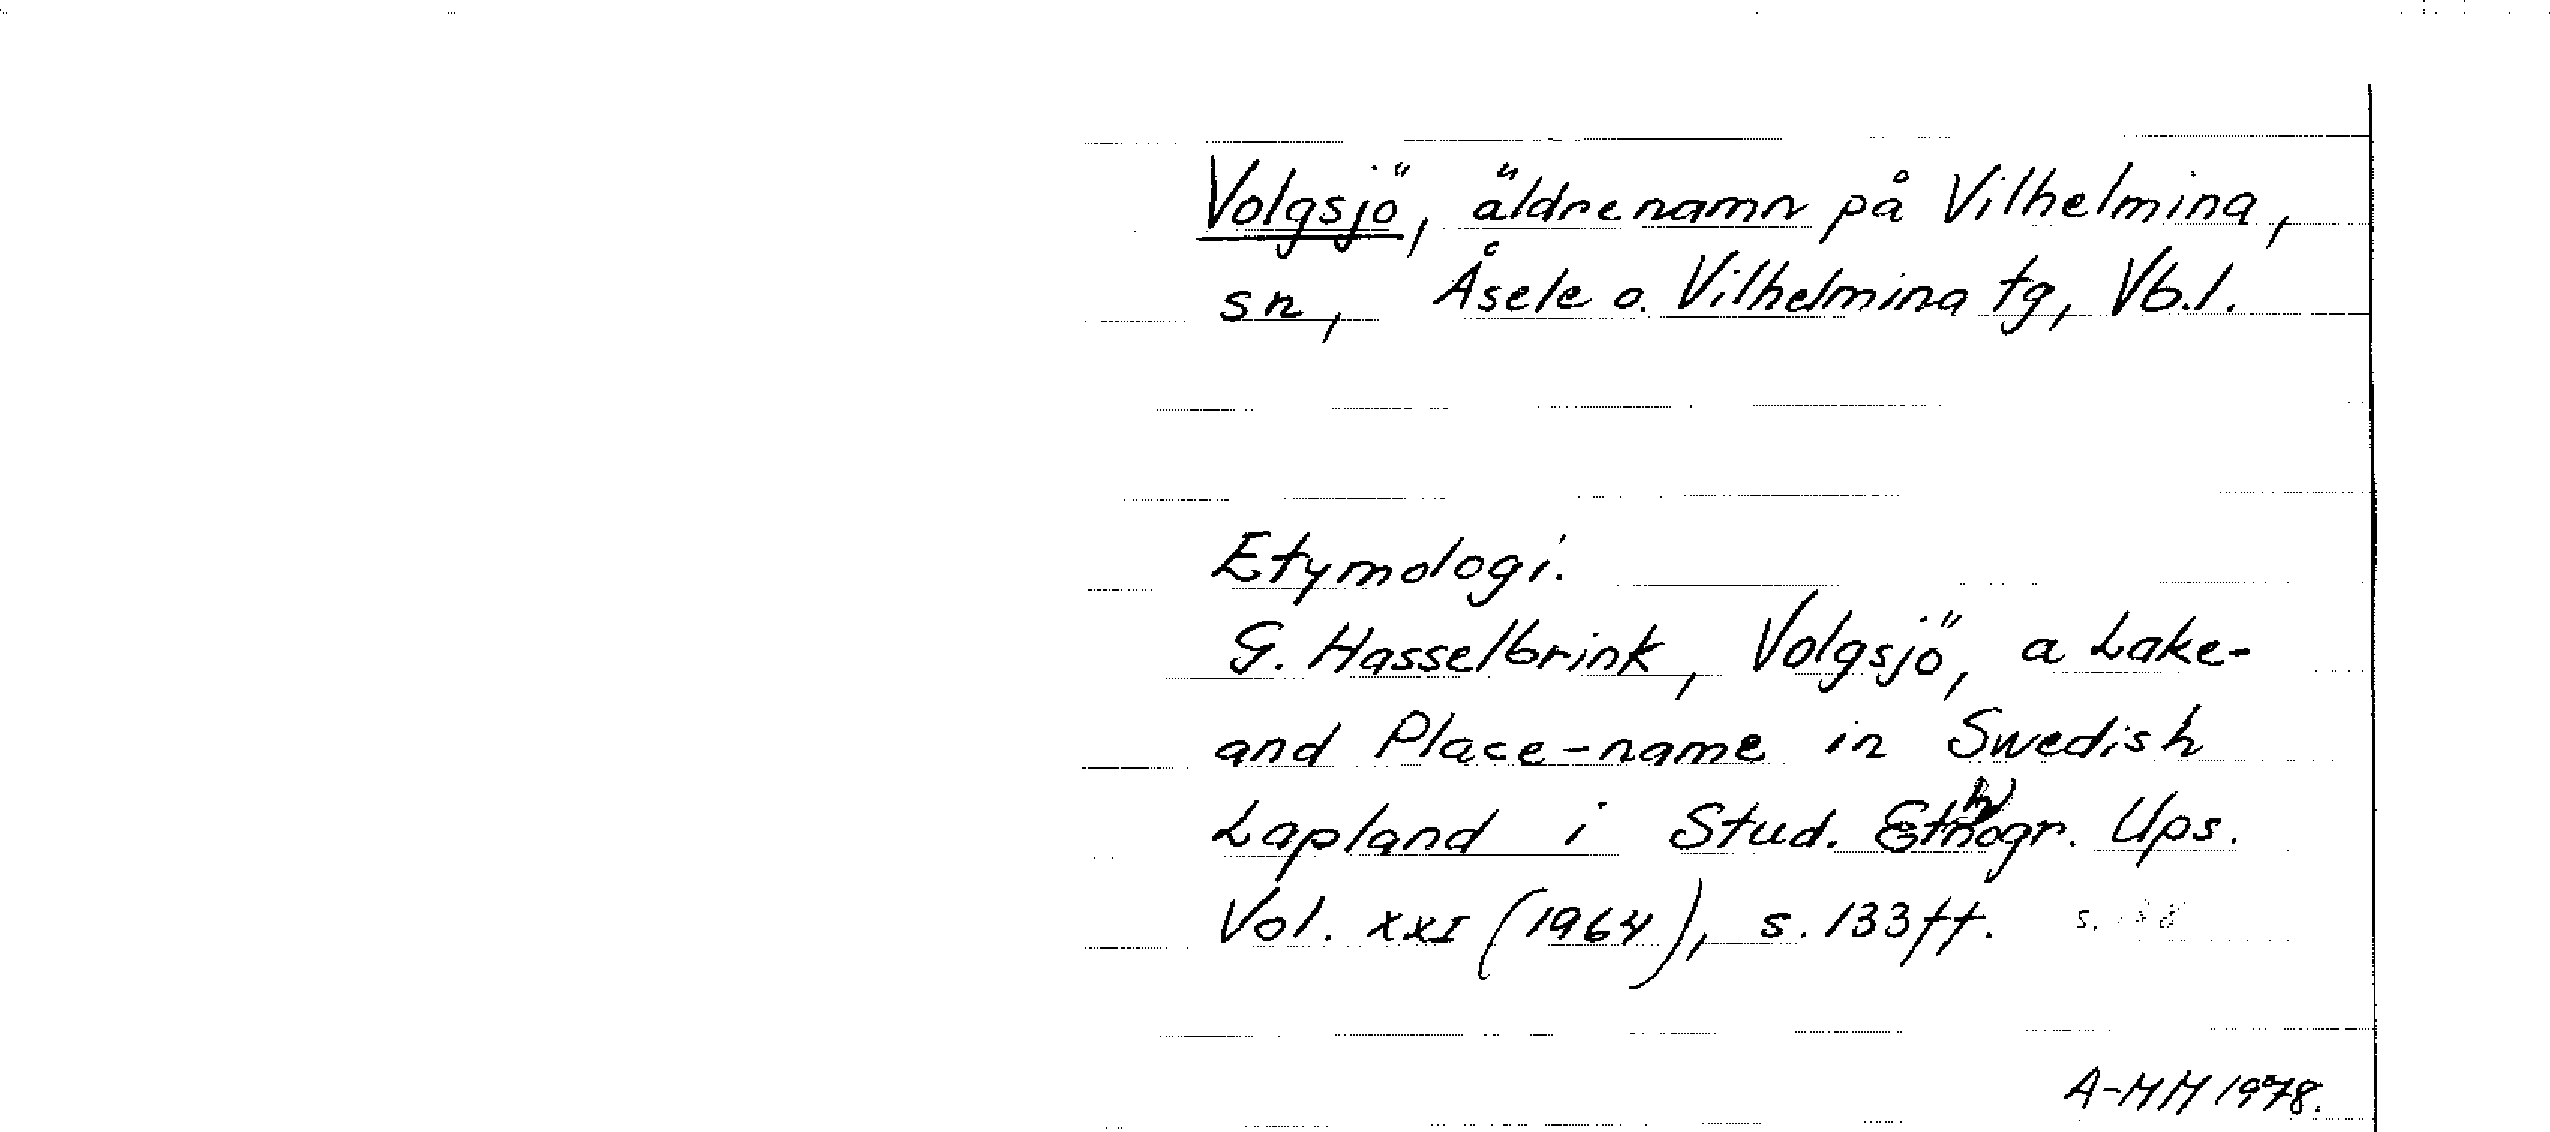 Volgsjö, äldre namn på Vilhelmina,
sn, Åsele o. Vilhelmina tg, Vb.l.
Etymologi.
G. Hasselbrink, Volgsjö, a Lake-
and Place-name in Swedish
Lapland i Stud. Ethnogr. Ups.
Vol. XXI (1964), s. 133ff.
A-MM 1978.